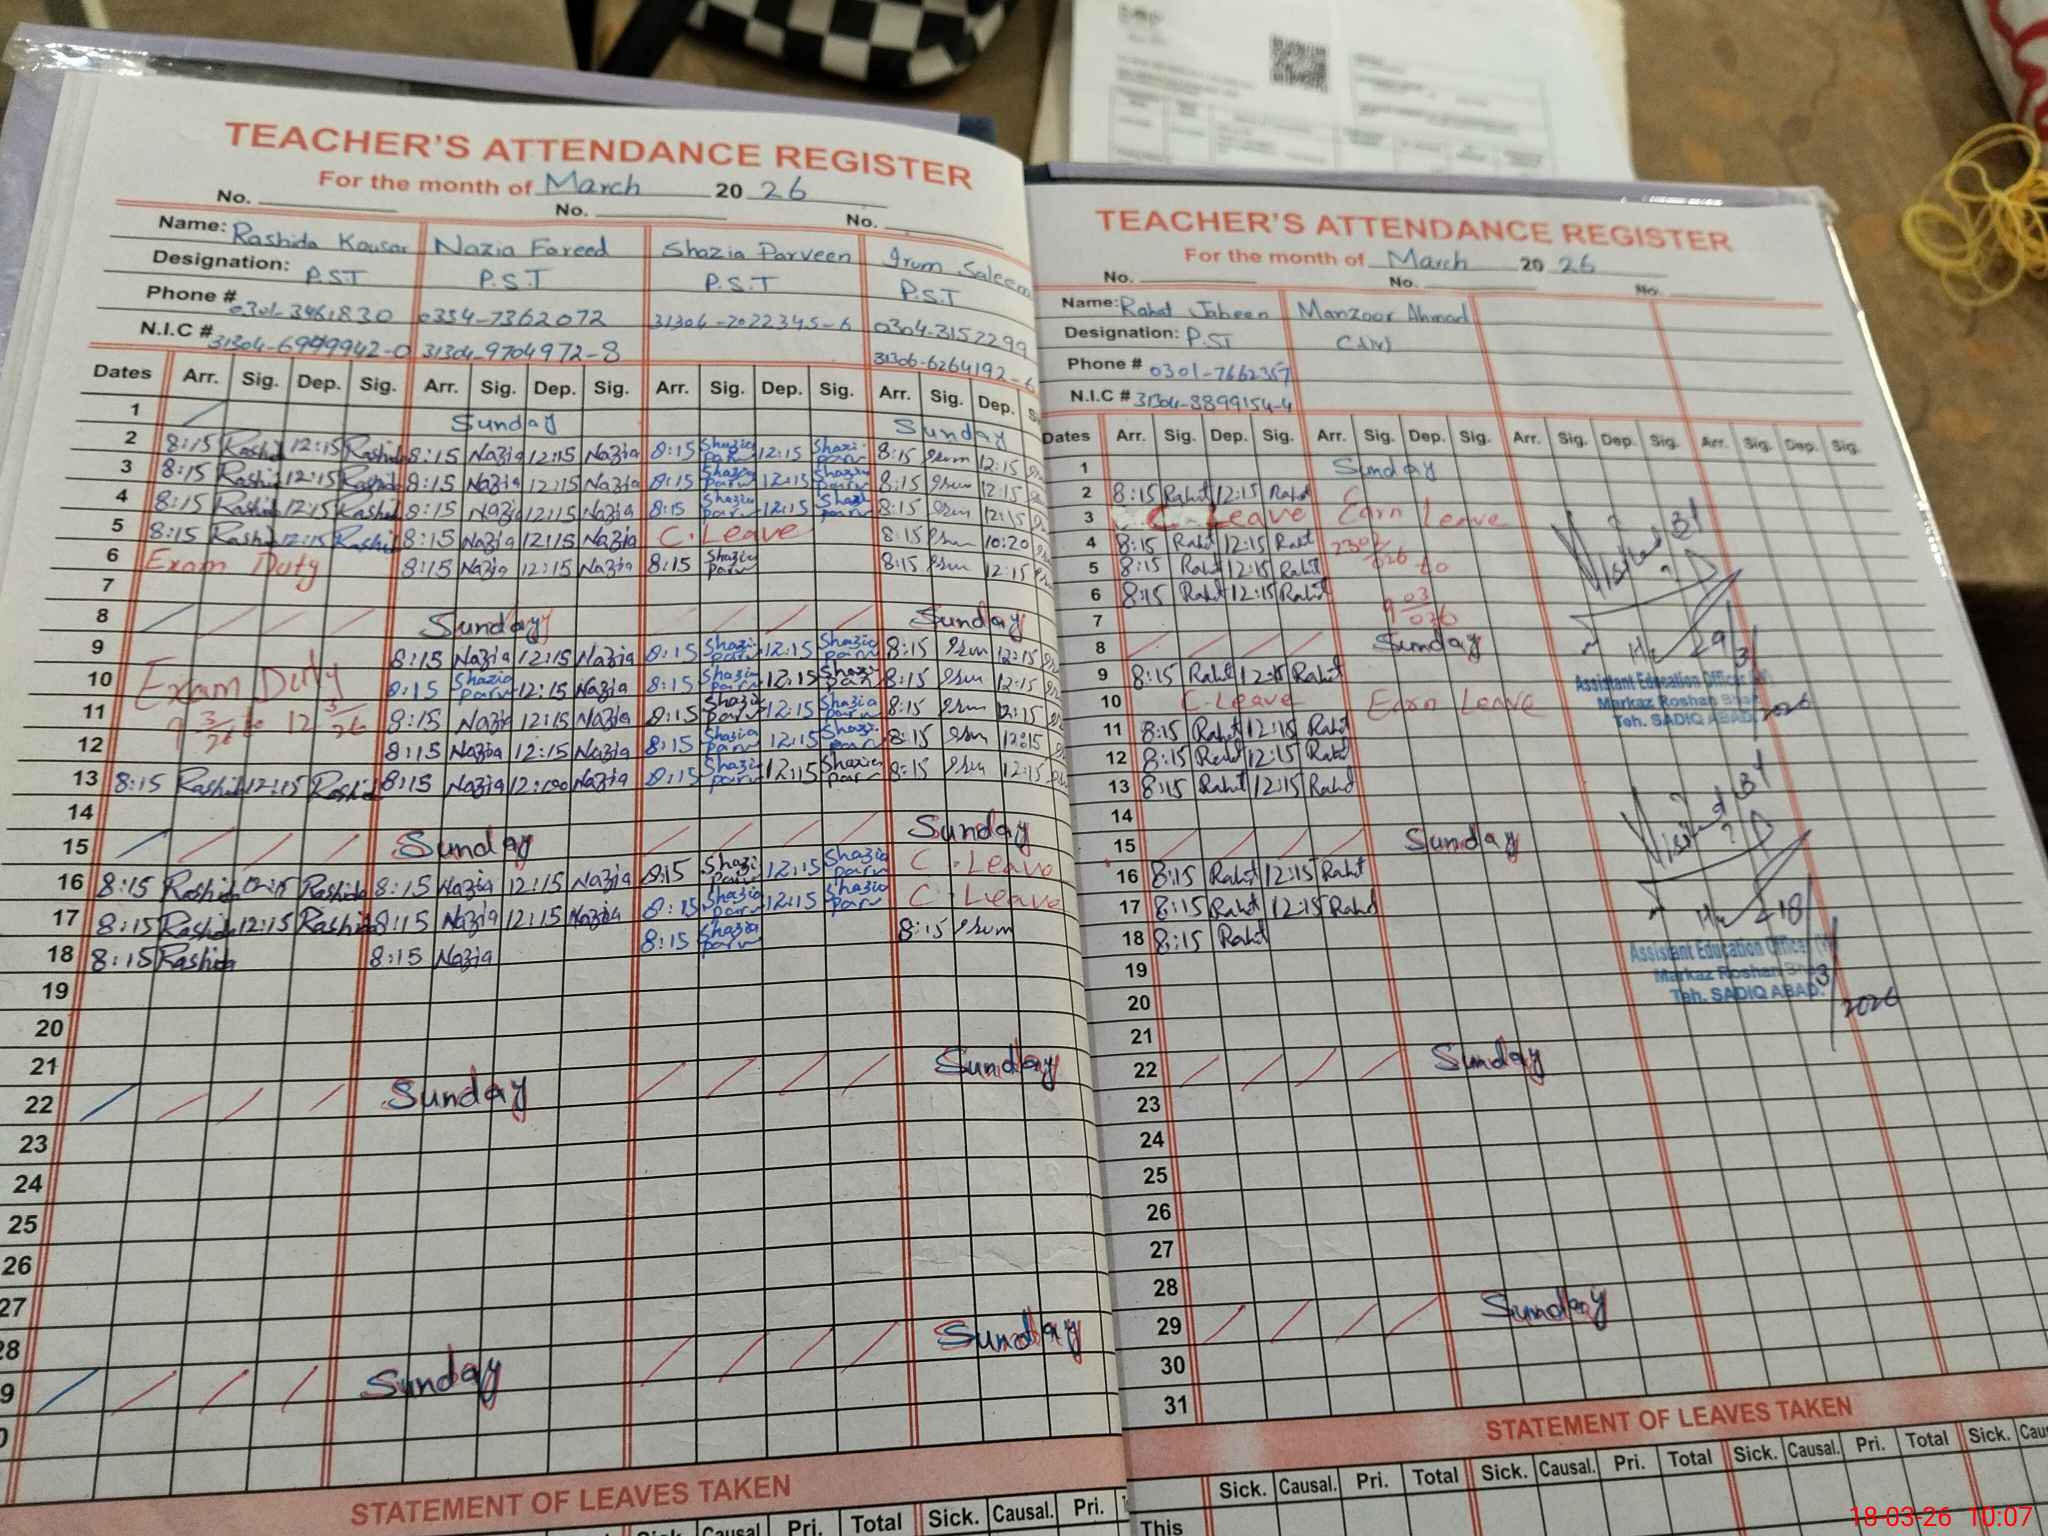 TEACHER'S ATTENDANCE REGISTER
For the month of March 20 26
No. No. No.
Name: Rashida Kousar Nazia Fareed Shazia Parveen Irum Saleem
Designation: P.S.T P.S.T P.S.T P.S.T
Phone # 0354-7362072 31304-2022345-6 0304-3152299
N.I.C # 31304-9704972-8 31306-6264192-6
Dates Arr. Sig. Dep. Sig. Arr. Sig. Dep. Sig. Arr. Sig. Dep. Sig. Arr. Sig. Dep.
1 Sunday Sunday
2 8:15 Rashid 12:15 Rashid 8:15 Nazia 12:15 Nazia 8:15 Shazia Parv 12:15 Shazia 8:15 Irum 12:15
3 8:15 Rashid 12:15 Rashida 8:15 Nazia 12:15 Nazia 8:15 Shazia Parv 12:15 Shazia Parv 8:15 Irum 12:15
4 8:15 Rashid 12:15 Rashid 8:15 Nazia 12:15 Nazia 8:15 Shazia Parv 12:15 Shazia Parv 8:15 Irum 12:15
5 8:15 Rashid 12:15 Rashid 8:15 Nazia 12:15 Nazia C.Leave 8:15 Irum 10:20
6 Exam Duty 8:15 Nazia 12:15 Nazia 8:15 Shazia Parv 8:15 Irum 12:15
7
8 Sunday Sunday
9 8:15 Nazia 12:15 Nazia 8:15 Shazia Parv 12:15 Shazia Parv 8:15 Irum 12:15
10 Exam Duty 8:15 Shazia Parv 12:15 Nazia 8:15 Shazia Parv 12:15 Shazia Parv 8:15 Irum 12:15
11 9 3/26 to 12 3/26 8:15 Nazia 12:15 Nazia 8:15 Shazia Parv 12:15 Shazia Parv 8:15 Irum 12:15
12 8:15 Nazia 12:15 Nazia 8:15 Shazia Parv 12:15 Shazia Parv 8:15 Irum 12:15
13 8:15 Rashid 12:15 Rashid 8:15 Nazia Nazia 8:15 Shazia Parv 12:15 Shazia Parv 8:15 Irum 12:15
14
15 Sunday Sunday
16 8:15 Rashid 12:15 Rashida 8:15 Nazia 12:15 Nazia 8:15 Shazia Parv 12:15 Shazia Parv C.Leave
17 8:15 Rashid 12:15 Rashid 8:15 Nazia 12:15 Nazia 8:15 Shazia Parv 12:15 Shazia Parv C.Leave
18 8:15 Rashida 8:15 Nazia 8:15 Shazia Parv 8:15 Irum
19
20
21
22 Sunday Sunday
23
24
25
26
27
28
9 Sunday Sunday
0
STATEMENT OF LEAVES TAKEN
Sick. Causal Pri. Total Sick. Causal. Pri.
TEACHER'S ATTENDANCE REGISTER
For the month of March 20 26
No. No. No.
Name: Rahat Jabeen Manzoor Ahmad
Designation: P.ST
Phone # 0301-7662357
N.I.C # 31304-8899154-4
Dates Arr. Sig. Dep. Sig. Arr. Sig. Dep. Sig. Arr. Sig. Dep. Sig. Arr. Sig. Dep. Sig.
1 Sunday
2 8:15 Rahat 12:15 Rahat
3 C-Leave Earn Leave
4 8:15 Rahat 12:15 Rahat
5 8:15 Rahat 12:15 Rahat to
6 8:15 Rahat 12:15 Rahat
7 9 03/026
8 Sunday
9 8:15 Rahat 12:15 Rahat
10 C-Leave Earn Leave
11 8:15 Rahat 12:15 Rahat
12 8:15 Rahat 12:15 Rahat
13 8:15 Rahat 12:15 Rahat
14
15 Sunday
16 8:15 Rahat 12:15 Rahat
17 8:15 Rahat 12:15 Rahat
18 8:15 Rahat
19
20
21
22 Sunday
23
24
25
26
27
28
29 Sunday
30
31
Visited By
Assistant Education Officer
Markaz Roshan
Teh. SADIQ ABAD.
2026
Visited By
18/3/2026
Assistant Education Officer
Markaz Roshan
Teh. SADIQ ABAD.
STATEMENT OF LEAVES TAKEN
Sick. Causal. Pri. Total Sick. Causal. Pri. Total Sick. Causal. Pri. Total Sick. Cau
This
18-03-26 10:07